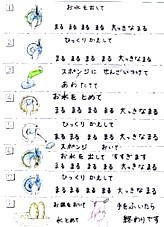 1
お水を出して
まる まる まる まる 大っきなまる
2
ひっくりかえして
まる まる まる まる 大っきなまる
3
スポンジに せんざいつけて
あわたてて
4
お水をとめて
まる まる まる まる 大っきなまる
ひっくりかえして
まる まる まる まる 大っきなまる
スポンジ おいて
お水を出して すすぎます
まる まる まる まる 大っきなまる
ひっくりかえして
まる まる まる まる 大っきなまる
水とめて
手をふいたら
終わりです